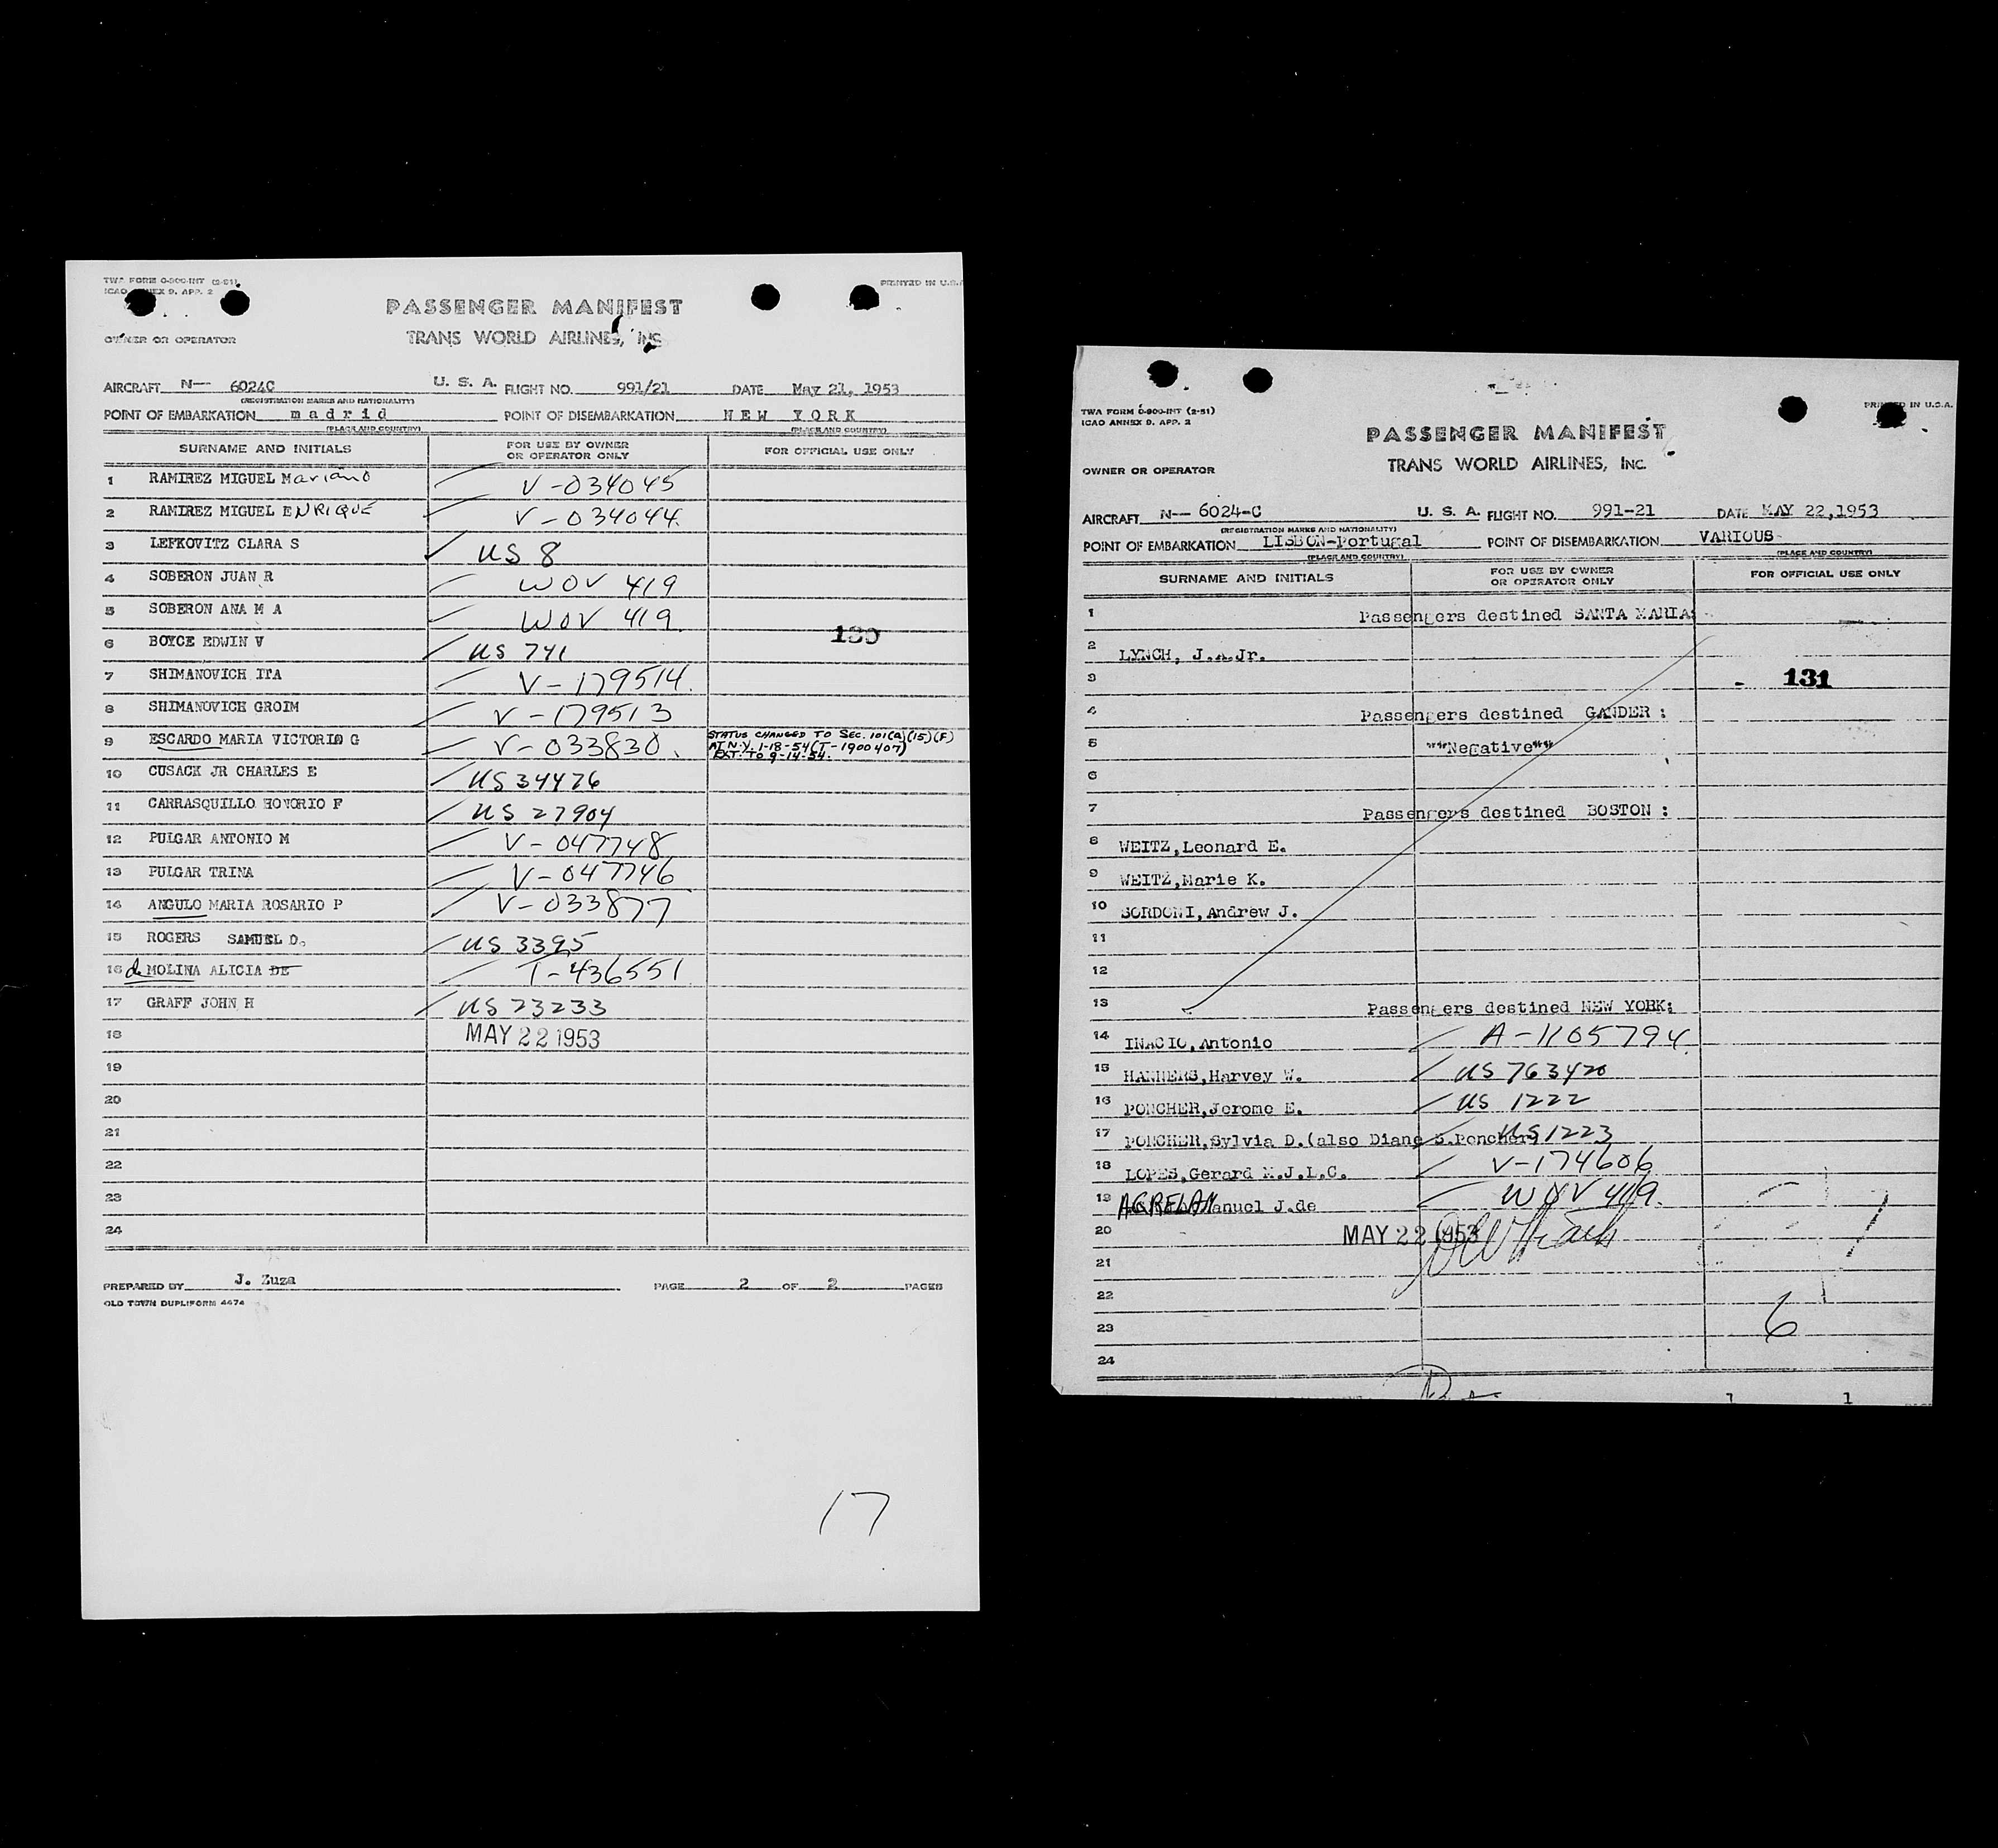 TWA FORM O-800-INT (2-51)
ICAO ANNEX 9. APP. 2
PRINTED IN U.S.A.
PASSENGER MANIFEST
OWNER OR OPERATOR
TRANS WORLD AIRLINES, INC
AIRCRAFT N— 6024C U. S. A. FLIGHT NO. 991/21 DATE May 21, 1953
(REGISTRATION MARKS AND NATIONALITY)
POINT OF EMBARKATION madrid POINT OF DISEMBARKATION NEW YORK
(PLACE AND COUNTRY) (PLACE AND COUNTRY)
SURNAME AND INITIALS FOR USE BY OWNER OR OPERATOR ONLY FOR OFFICIAL USE ONLY
1 RAMIREZ MIGUEL Mariano V-034045
2 RAMIREZ MIGUEL ENRIQUE V-034044
3 LEFKOVITZ CLARA S US 8
4 SOBERON JUAN R WOV 419
5 SOBERON ANA M A WOV 419
130
6 BOYCE EDWIN V US 741
7 SHIMANOVICH ITA V-179514
8 SHIMANOVICH GROIM V-179513
9 ESCARDO MARIA VICTORIA G V-033830 STATUS CHANGED TO SEC. 101(a)(15)(F)
AT N.Y. 1-18-54 (T-1900407)
EXT. TO 9-14-54.
10 CUSACK JR CHARLES E US 34476
11 CARRASQUILLO HONORIO F US 27904
12 PULGAR ANTONIO M V-047748
13 PULGAR TRINA V-047746
14 ANGULO MARIA ROSARIO P V-033877
15 ROGERS SAMUEL D. US 3395
16 de MOLINA ALICIA DE T-436551
17 GRAFF JOHN H US 23233
18 MAY 22 1953
19
20
21
22
23
24
PREPARED BY J. Zuza PAGE 2 OF 2 PAGES
OLD TOWN DUPLIFORM 4674
17
TWA FORM O-800-INT (2-51)
ICAO ANNEX 9. APP. 2
PRINTED IN U.S.A.
PASSENGER MANIFEST
OWNER OR OPERATOR
TRANS WORLD AIRLINES, INC.
AIRCRAFT N— 6024-C U. S. A. FLIGHT NO. 991-21 DATE MAY 22,1953
(REGISTRATION MARKS AND NATIONALITY)
POINT OF EMBARKATION LISBON-Portugal POINT OF DISEMBARKATION VARIOUS
(PLACE AND COUNTRY) (PLACE AND COUNTRY)
SURNAME AND INITIALS FOR USE BY OWNER OR OPERATOR ONLY FOR OFFICIAL USE ONLY
1 Passengers destined SANTA MARIA:
2 LYNCH, J.A.Jr.
3 - 131
4 Passengers destined GANDER :
5 ""Negative""
6
7 Passengers destined BOSTON :
8 WEITZ,Leonard E.
9 WEITZ,Marie K.
10 SORDONI,Andrew J.
11
12
13 Passengers destined NEW YORK:
14 INACIO,Antonio A-1105794
15 HANNERS,Harvey W. US 763420
16 PONCHER,Jerome E. US 1222
17 PONCHER,Sylvia D.(also Diane S.Poncher) US 1223
18 LOPES,Gerard M.J.L.C. V-174606
19 AGRELA Manuel J.de WOV 419
20 MAY 22 1953
21
22
23 6
24
1 1